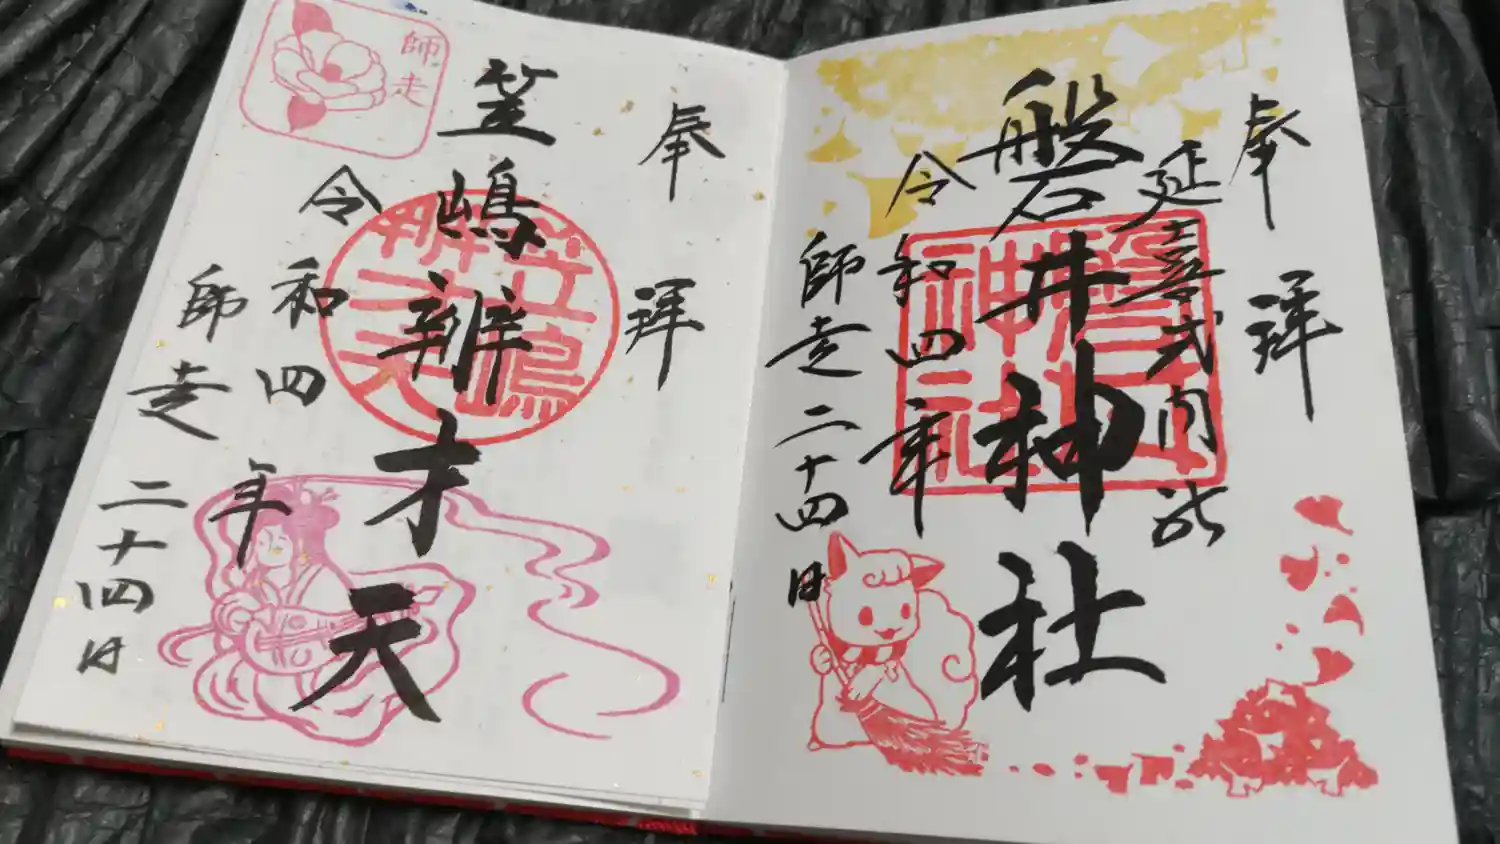 奉拝
延喜式内社
磐井神社
磐井神社
令和四年
師走二十四日
奉拝
笠嶋辨才天
笠嶋辨才天
令和四年
師走二十四日
師走